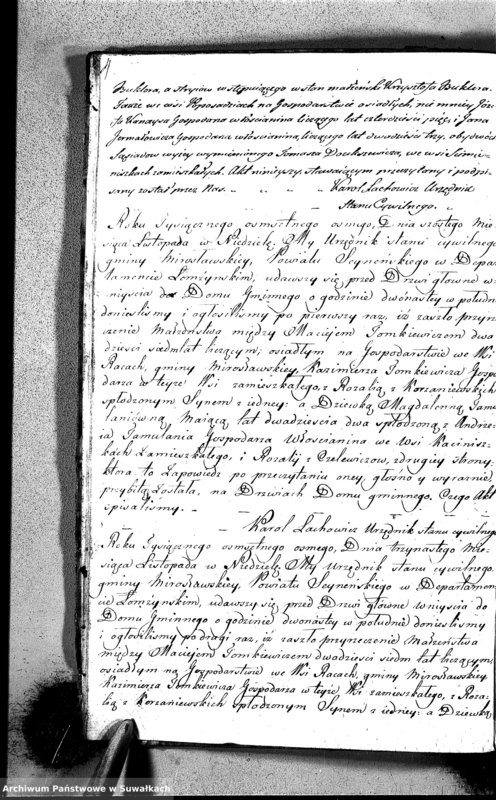 Buklera, a stryiów wstępuiącego w stan małżeński Krzysztofa Buklera.
Tudzież we wsi na Gospodarstwie osiadłych, nie mniey Józe-
fa Gospodarza włościanina liczącego lat czterdzieści pięć, i Jana
Jermałowicza Gospodarza włościanina, liczącego lat dwadzieścia trzy, obydwóch
Sąsiadów wyżey wymienionego Tomasza we wsi
zamieszkałych. Akt ninieyszy stawaiącym przeczytany i podpi-
sany został przez Nas. Karol Lachowicz Urzędnik
Stanu Cywilnego.
Roku tysiącznego osmsetnego osmego, Dnia szóstego Mie-
siąca Listopada w Niedzielę. My Urzędnik stanu cywilnego
gminy Mirosławskiey, Powiatu Seyneńskiego w Depar-
tamencie Łomżyńskim, udawszy się przed Drzwi główne w-
niyścia do Domu Gminnego o godzinie dwónastey w południe
donieśliśmy i ogłosiliśmy po pierwszy raz, iż zaszło przyrze-
czenie Małżeństwa między Maciejem Tomkiewiczem dwa-
dzieści siedm lat liczącym; osiadłym na Gospodarstwie we Wsi
Racach, gminy Mirosławskiey, Kazimierza Tomkiewicza Gospo-
darza w teyże Wsi zamieszkałego, z Rozalią z Korzaniewskich
spłodzonym Synem z iedney: a Dziewką Magdalenną Jamu-
laniówną maiącą lat dwadzieścia dwa spłodzoną z Andrze-
ia Jamulania Gospodarza Włościanina we Wsi Racinisz-
kach Zamieszkałego, i Rozalij z Czelewiczow, z drugiey strony,
która to Zapowiedz po przeczytaniu oney, głośno y wyraźnie
przybitą Została, na Drzwiach Domu gminnego. Czego Akt
spisaliśmy.
Karol Lachowicz Urzędnik stanu cywilnego
Roku tysiącznego osmsetnego osmego, Dnia trzynastego Mie-
siąca Listopada w Niedzielę My Urzędnik stanu cywilnego.
gminy Mirosławskiey, Powiatu Seyneńskiego w Departamen-
cie Łomżyńskim, udawszy się przed Drzwi główne wniyścia do
Domu Gminnego o godzinie dwónastey w południe donieśliśmy
i ogłosiliśmy po drugi raz, iż zaszło przyrzeczenie Małżeństwa
między Maciejem Tomkiewiczem dwadzieści siedm lat liczącym,
osiadłym na Gospodarstwie we Wsi Racach, gminy Mirosławskiey
Kazimierza Tomkiewicza Gospodarza w teyże Wsi zamieszkałego, z Roza-
lią z Korzaniewskich spłodzonym Synem z iedney: a Dziewką
Archiwum Państwowe w Suwałkach